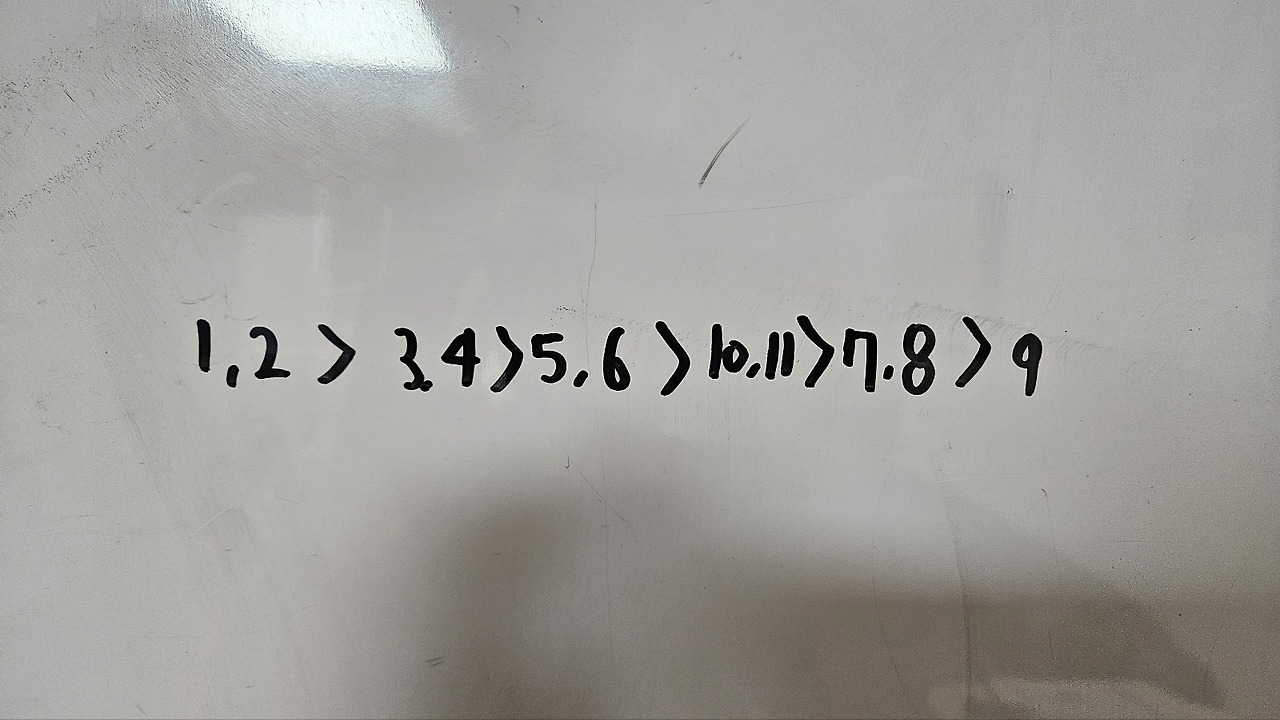 1,2 > 3.4>5,6 >10,11>7.8 > 9